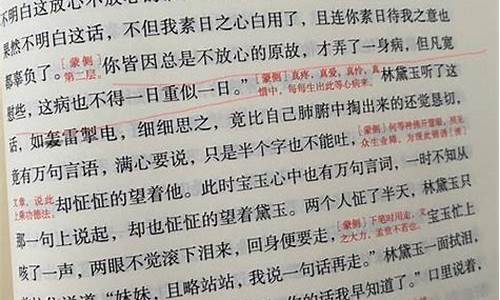 不明白这话放心不放心的
果然不明白这话,不但我素日之心白用了,且连你素日待我之意也
都辜负了。[蒙侧]第二层。你皆因总是不放心的原故,才弄了一身病,但凡宽
慰些,这病也不得一日重似一日。”[蒙侧]真疼,真爱,真怜,真惜中,每每生出此等心病来。林黛玉听了这
话,如轰雷掣电,细细思之,竟比自己肺腑中掏出来的还觉恳切,
竟有万句言语,满心要说,只是半个字也不能吐,[蒙侧]何等神佛开慧眼,照见众生业障,为现此锦绣
文章,说此上乘功德法。却怔怔的望着他。此时宝玉心中也有万句言词,一时不知从
那一句上说起,却也怔怔的望着黛玉。两个人怔了半天,林黛玉只
咳了一声,两眼不觉滚下泪来,回身便要走,[蒙侧]下笔时用走,文之大力,孟贲不若也。宝玉忙上
说道:“妹妹,且略站站,我说一句话再走。”林黛玉一面拭泪,
你的话我早知道了。”口里说着,